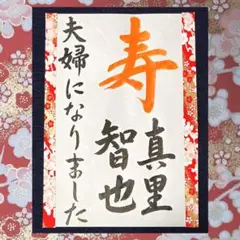 寿
真里
智也
夫婦になりました